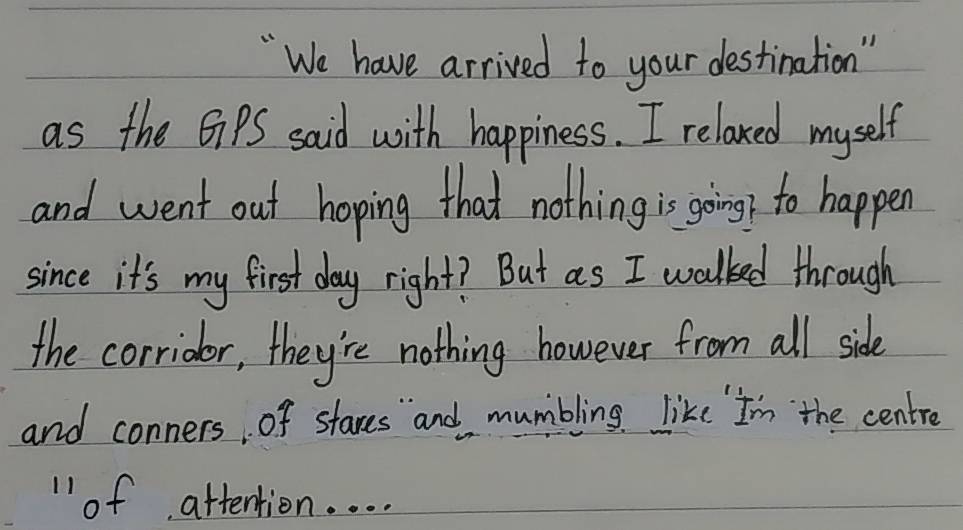 "We have arrived to your destination"
as the GPS said with happiness. I relaxed myself
and went out hoping that nothing is going to happen
since it's my first day right? But as I walked through
the corridor, they're nothing however from all side
and conners, of stares "and mumbling like "I'm the centre
"of attention....